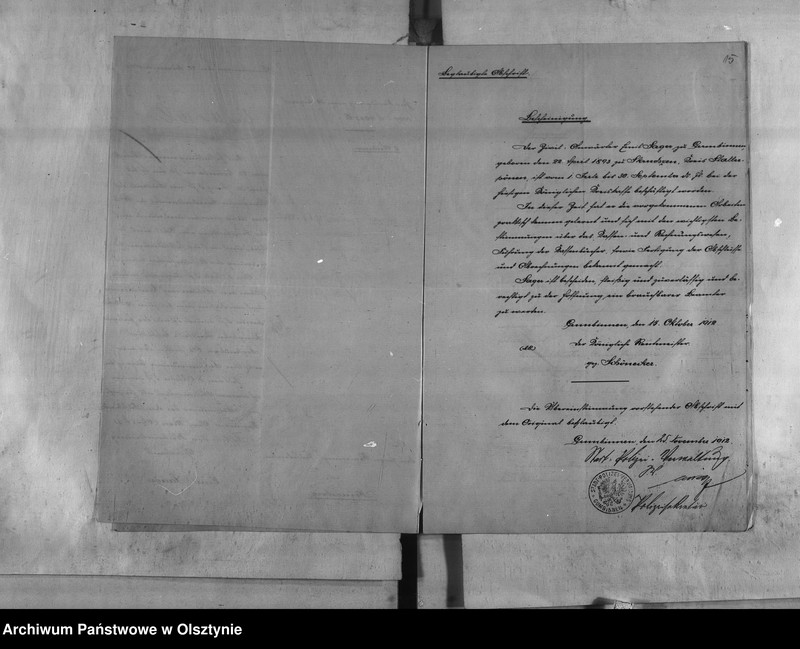 15
Beglaubigte Abschrift.
Bescheinigung
Der Zivil-Anwärter Emil Kager zu Gumbinnen,
geboren den 22. April 1893 zu Kreis Stallu-
pönen, ist vom 1. Juli bis 30. September d. Js. bei der
hiesigen Königlichen Kreiskasse beschäftigt worden.
In dieser Zeit hat er die vorgekommenen Arbeiten
praktisch kennen gelernt und sich mit den wichtigsten Be-
stimmungen über das Kassen- und Rechnungswesen,
Führung der Kassenbücher, sowie Fertigung der Abschlüsse
und Abrechnungen bekannt gemacht.
Kager ist bescheiden, fleißig und zuverlässig und be-
rechtigt zu der Hoffnung, ein brauchbarer Beamter
zu werden.
Gumbinnen, den 18. Oktober 1912
Der Königliche Rentmeister.
gez. Schönecker.
Die Übereinstimmung vorstehender Abschrift mit
dem Original beglaubigt.
Gumbinnen, den 25. November 1912.
Stadt-Polizei-Verwaltung.
Polizeisekretär
GUMBINNEN
Archiwum Państwowe w Olsztynie